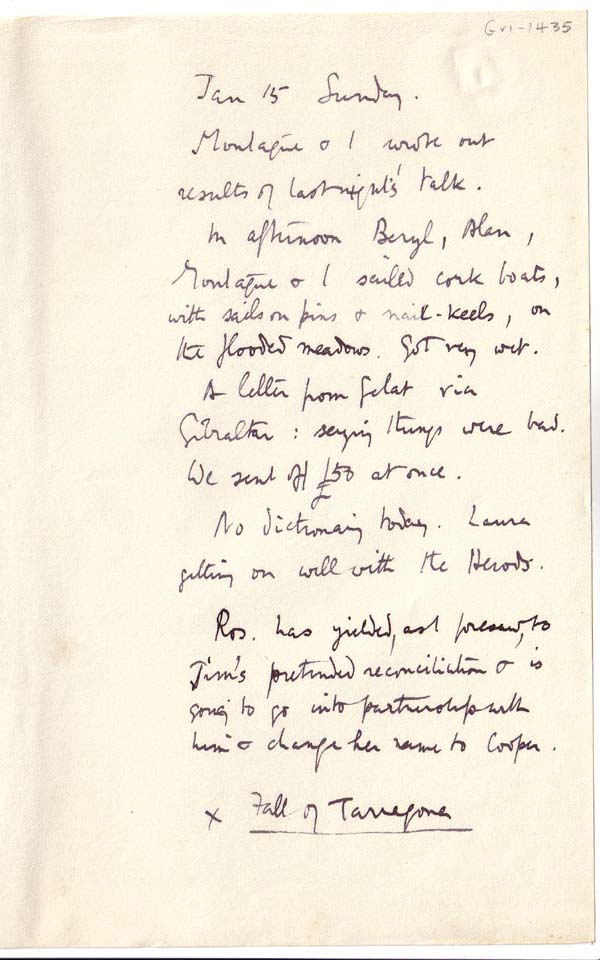 Gri-1435
Jan 15 Sunday.
Montague & I wrote out
results of last night's talk.
In afternoon Beryl, Alan,
Montague & I sailed cork boats,
with sails on pins & nail-keels, on
the flooded meadows. Got very wet.
A letter from Gelat via
Gibraltar: saying things were bad.
We sent off £50 at once.
No dictionary today. Laura
getting on well with the Herods.
Ros. has yielded, as I foresaw, to
Jim's pretended reconciliation & is
going to go into partnership with
him & change her name to Cooper.
x Fall of Tarragona